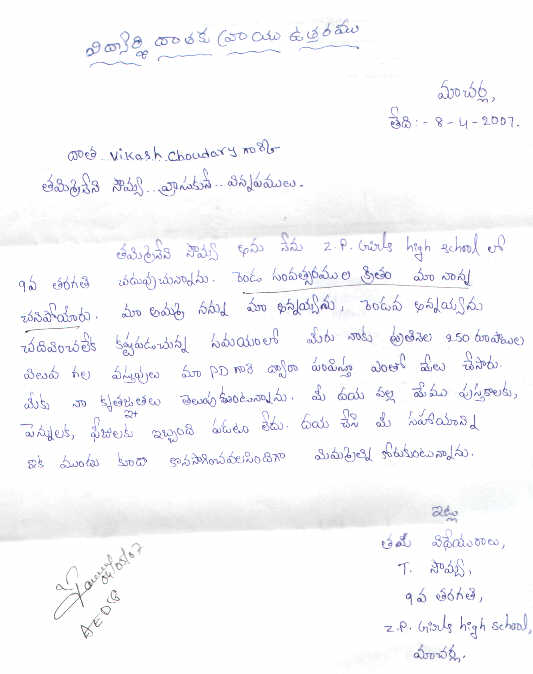 విద్యార్థి దాతకు వ్రాయు ఉత్తరము
మాచర్ల,
తేది :- 8-4-2007.
దాత Vikash Choudary గారికి
తమ్మిశెట్టి సౌమ్య వ్రాసుకునే విన్నపములు.
తమ్మిశెట్టి సౌమ్య అను నేను Z.P. Girls high school లో
9వ తరగతి చదువుచున్నాను. రెండు సంవత్సరముల క్రితం మా నాన్న
చనిపోయారు. మా అమ్మ నన్ను మా అన్నయ్యను, రెండవ అన్నయ్యను
చదివించలేక కష్టపడుచున్న సమయంలో మీరు నాకు ప్రతినెల 250 రూపాయల
విలువ గల వస్తువులు మా PD గారి ద్వారా పంపిస్తూ ఎంతో మేలు చేసారు.
మీకు నా కృతజ్ఞతలు తెలుపుకుంటున్నాను. మీ దయ వల్ల మేము పుస్తకాలకు,
పెన్నులకు, ఫీజులకు ఇబ్బంది పడటం లేదు. దయ చేసి మీ సహాయాన్ని
ఇక ముందు కూడా కొనసాగించవలసిందిగా మిమ్మల్ని కోరుకుంటున్నాను.
ఇట్లు
తమ విధేయురాలు,
T. సౌమ్య,
9వ తరగతి,
Z.P. Girls high school,
మాచర్ల.
04/05/07